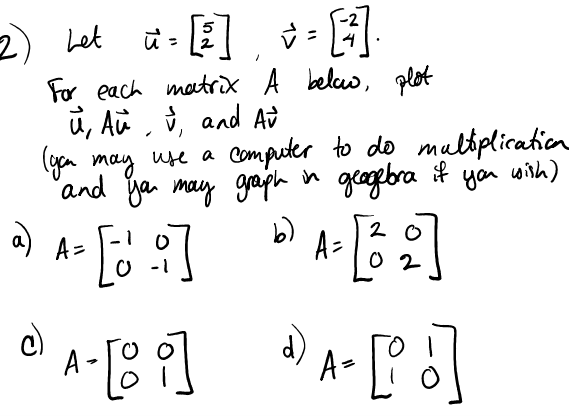 2) Let u⃗ = [5 2], v⃗ = [-2 4].
For each matrix A below, plot
u⃗, Au⃗, v⃗, and Av⃗
(you may use a computer to do multiplication
and you may graph in geogebra if you wish)
a) A = [-1 0 0 -1] b) A = [2 0 0 2]
c) A = [0 0 0 1] d) A = [0 1 1 0]